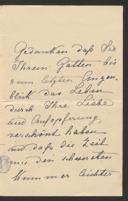 Gedanken daß Sie
Ihrem Gatten bis
zum letzten Augen-
blick das Leben
durch Ihre Liebe
und Aufopferung
verschönt haben
und daß die Zeit
mit den schwersten
Kummer lindert